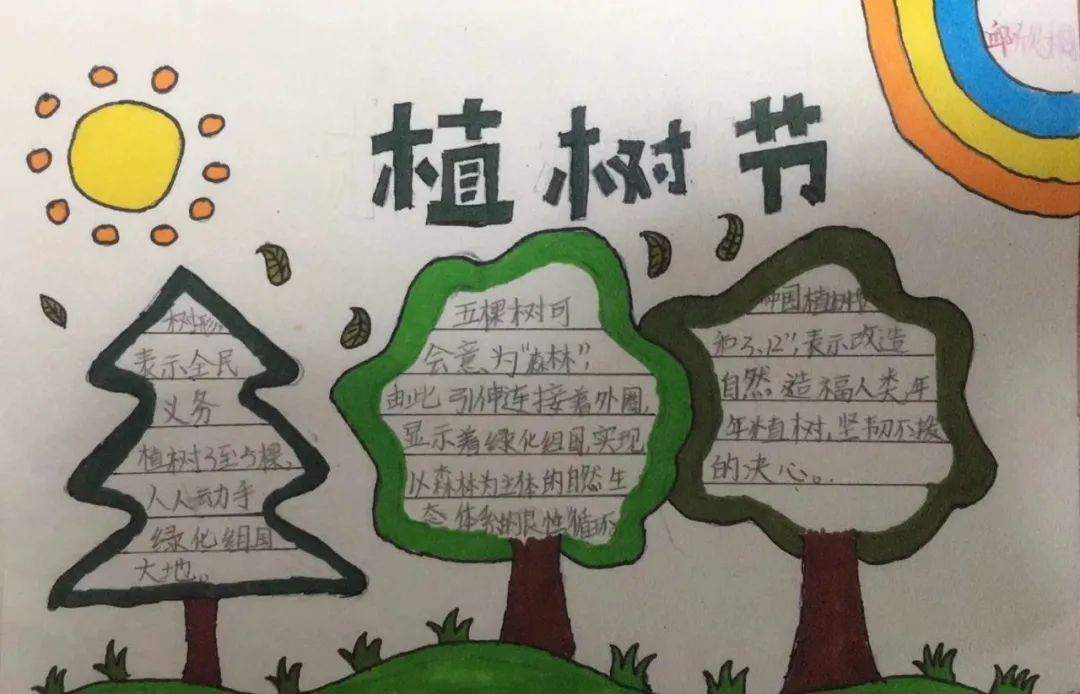 植树节
邱欣
树形
表示全民
义务
植树3至5棵、
人人动手
绿化组国
大地。
五棵树可
会意、为“森林”,
由此引伸连接着外圈,
显示着绿化组国,实现
以森林为主体的自然生
态体系的良性循环
中国植树节
和3、12”,表示改造
自然,造福人类,年
年植树,坚韧不拨
的决心。